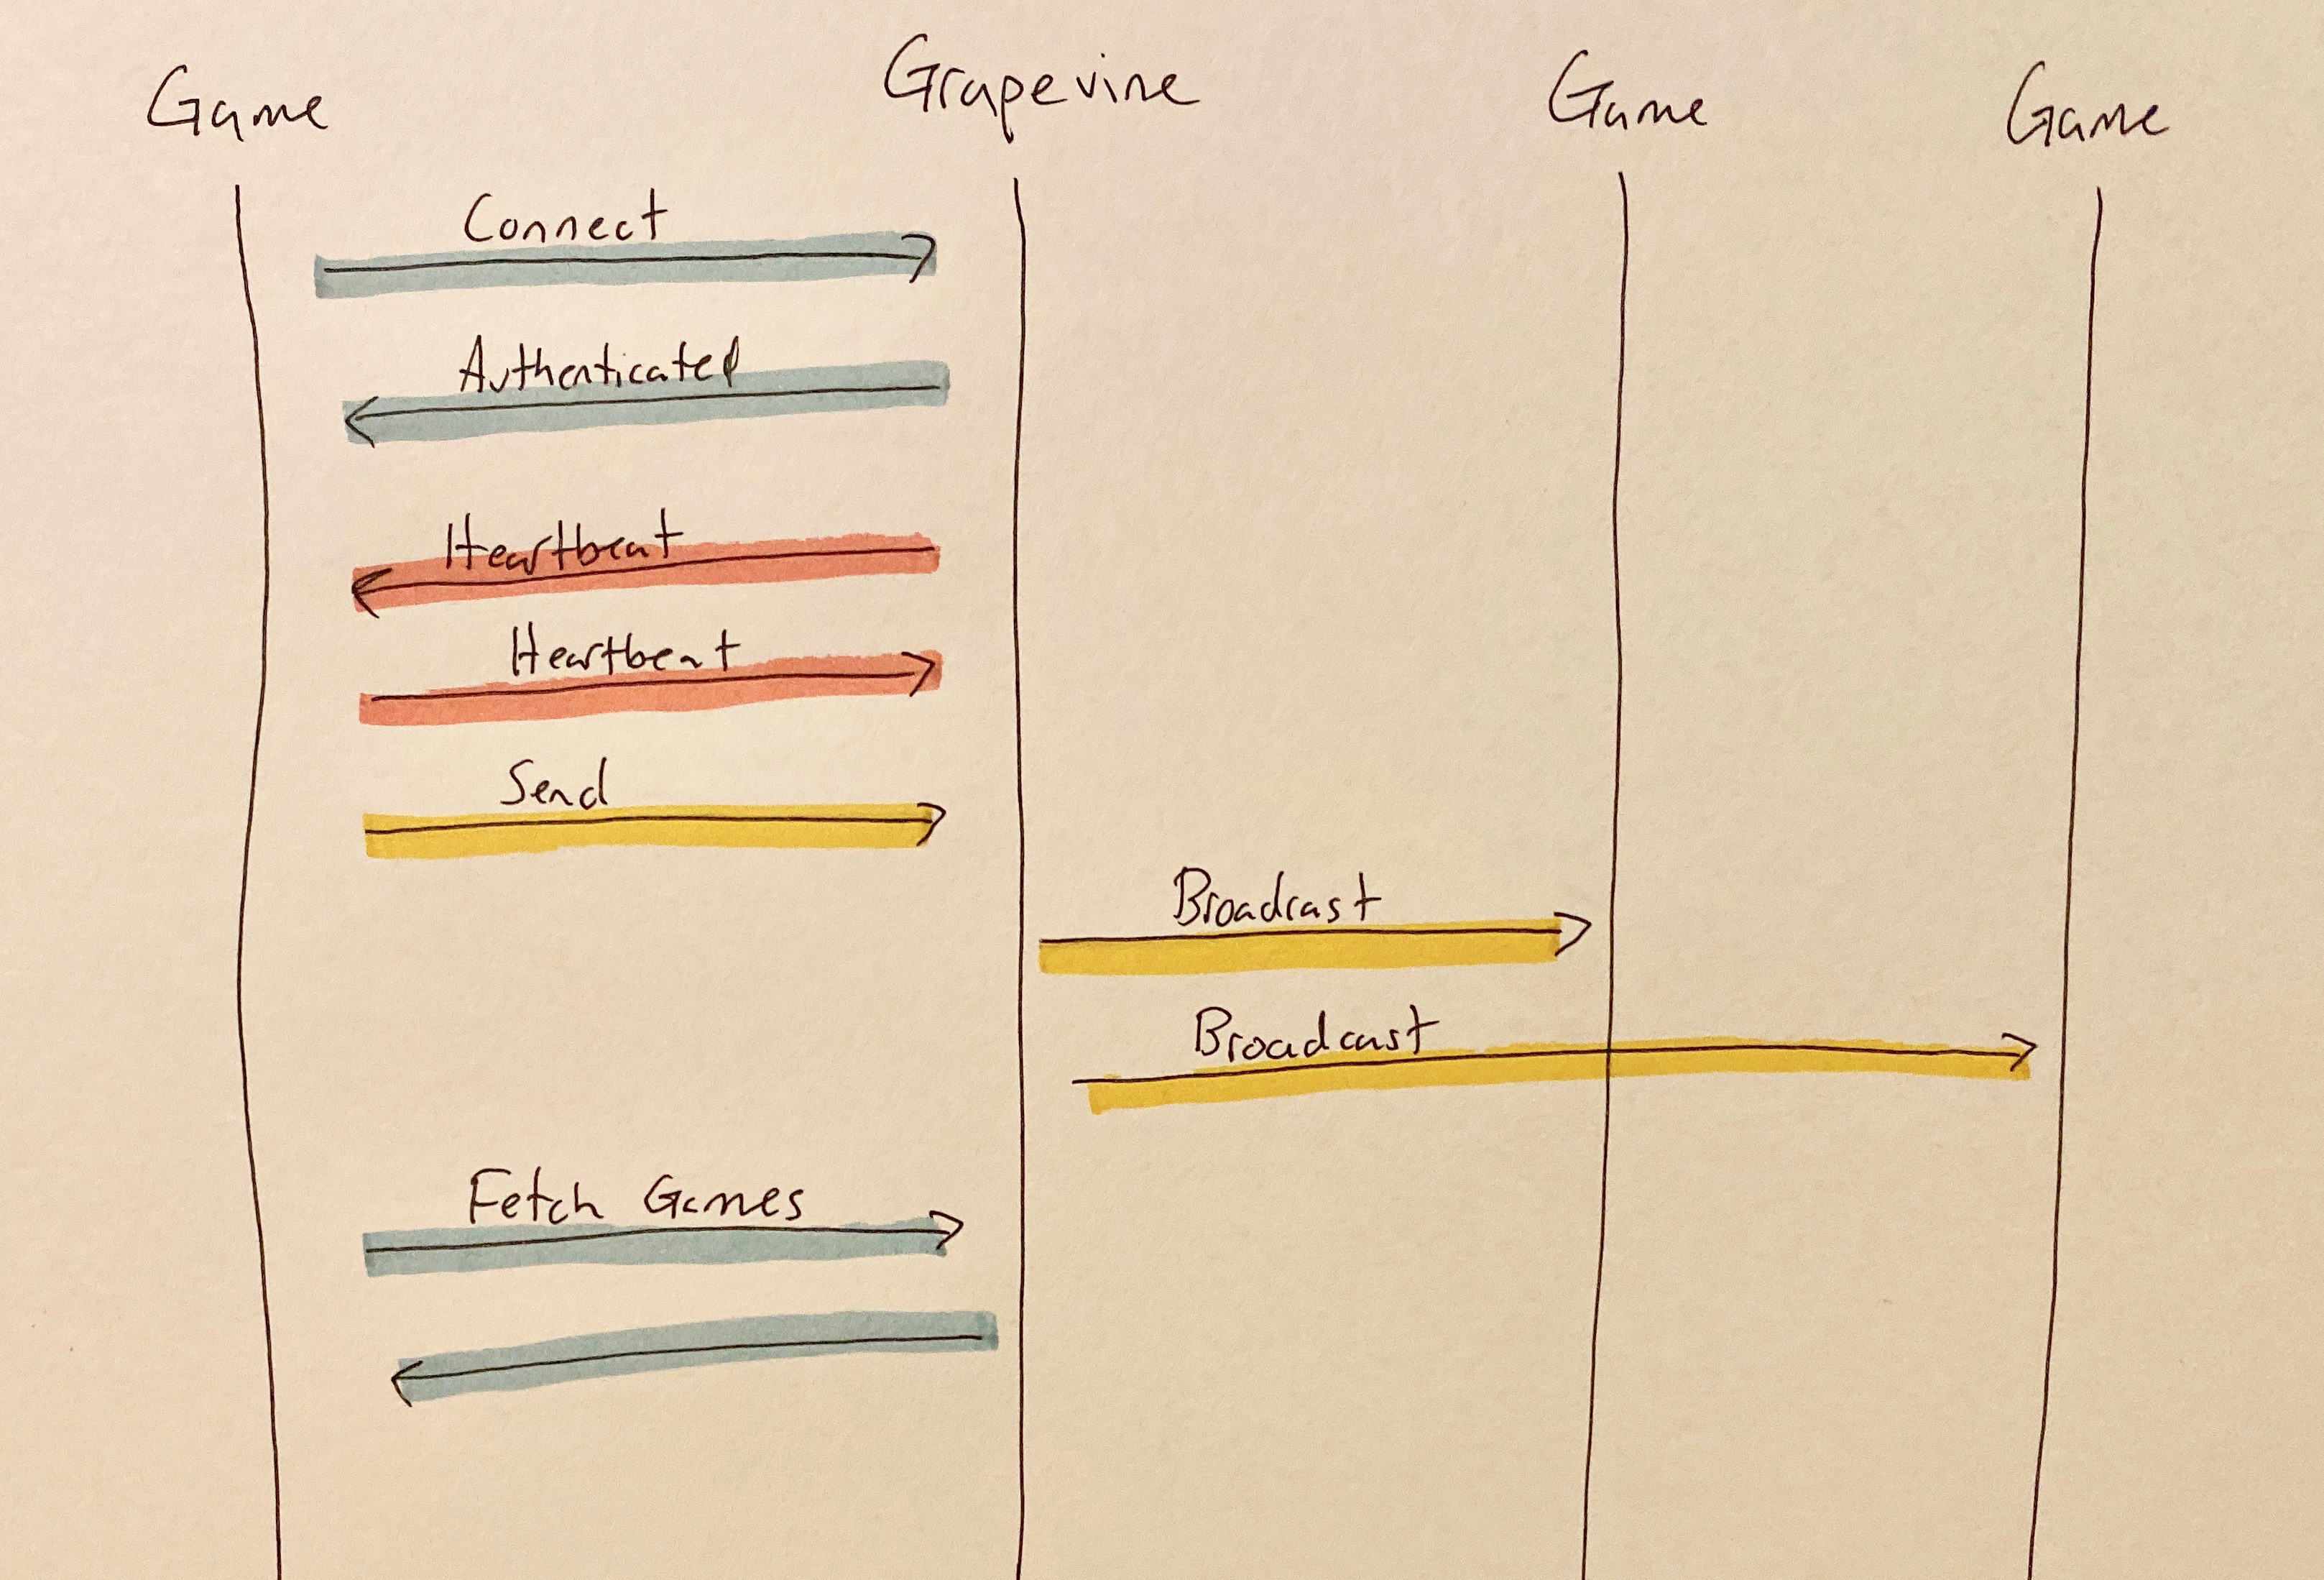 Game Grapevine Game Game
Connect
Authenticated
Heartbeat
Heartbeat
Send
Broadcast
Broadcast
Fetch Games